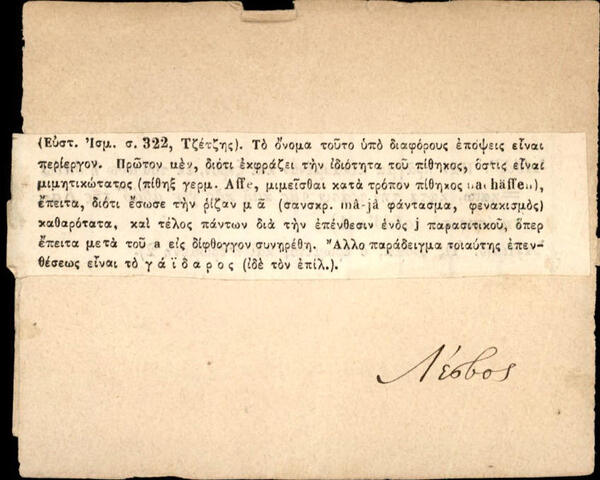 (Εὐστ. Ἰσμ. σ. 322, Τζέτζης). Τὸ ὄνομα τοῦτο ὑπὸ διαφόρους ἐπόψεις εἶναι
περίεργον. Πρῶτον μὲν, διότι ἐκφράζει τὴν ἰδιότητα τοῦ πίθηκος, ὅστις εἶναι
μιμητικώτατος (πίθηξ γερμ. Affe, μιμεῖσθαι κατὰ τρόπον πίθηκος nachäffen),
ἔπειτα, διότι ἔσωσε τὴν ῥίζαν μᾶ (σανσκρ. mâ-jâ φάντασμα, φενακισμὸς)
καθαρότατα, καὶ τέλος πάντων διὰ τὴν ἐπένθεσιν ἑνὸς j παρασιτικοῦ, ὅπερ
ἔπειτα μετὰ τοῦ a εἰς δίφθογγον συνῃρέθη. Ἄλλο παράδειγμα τοιαύτης ἐπεν-
θέσεως εἶναι τὸ γάϊδαρος (ἰδὲ τὸν ἐπίλ.).
Λέσβος